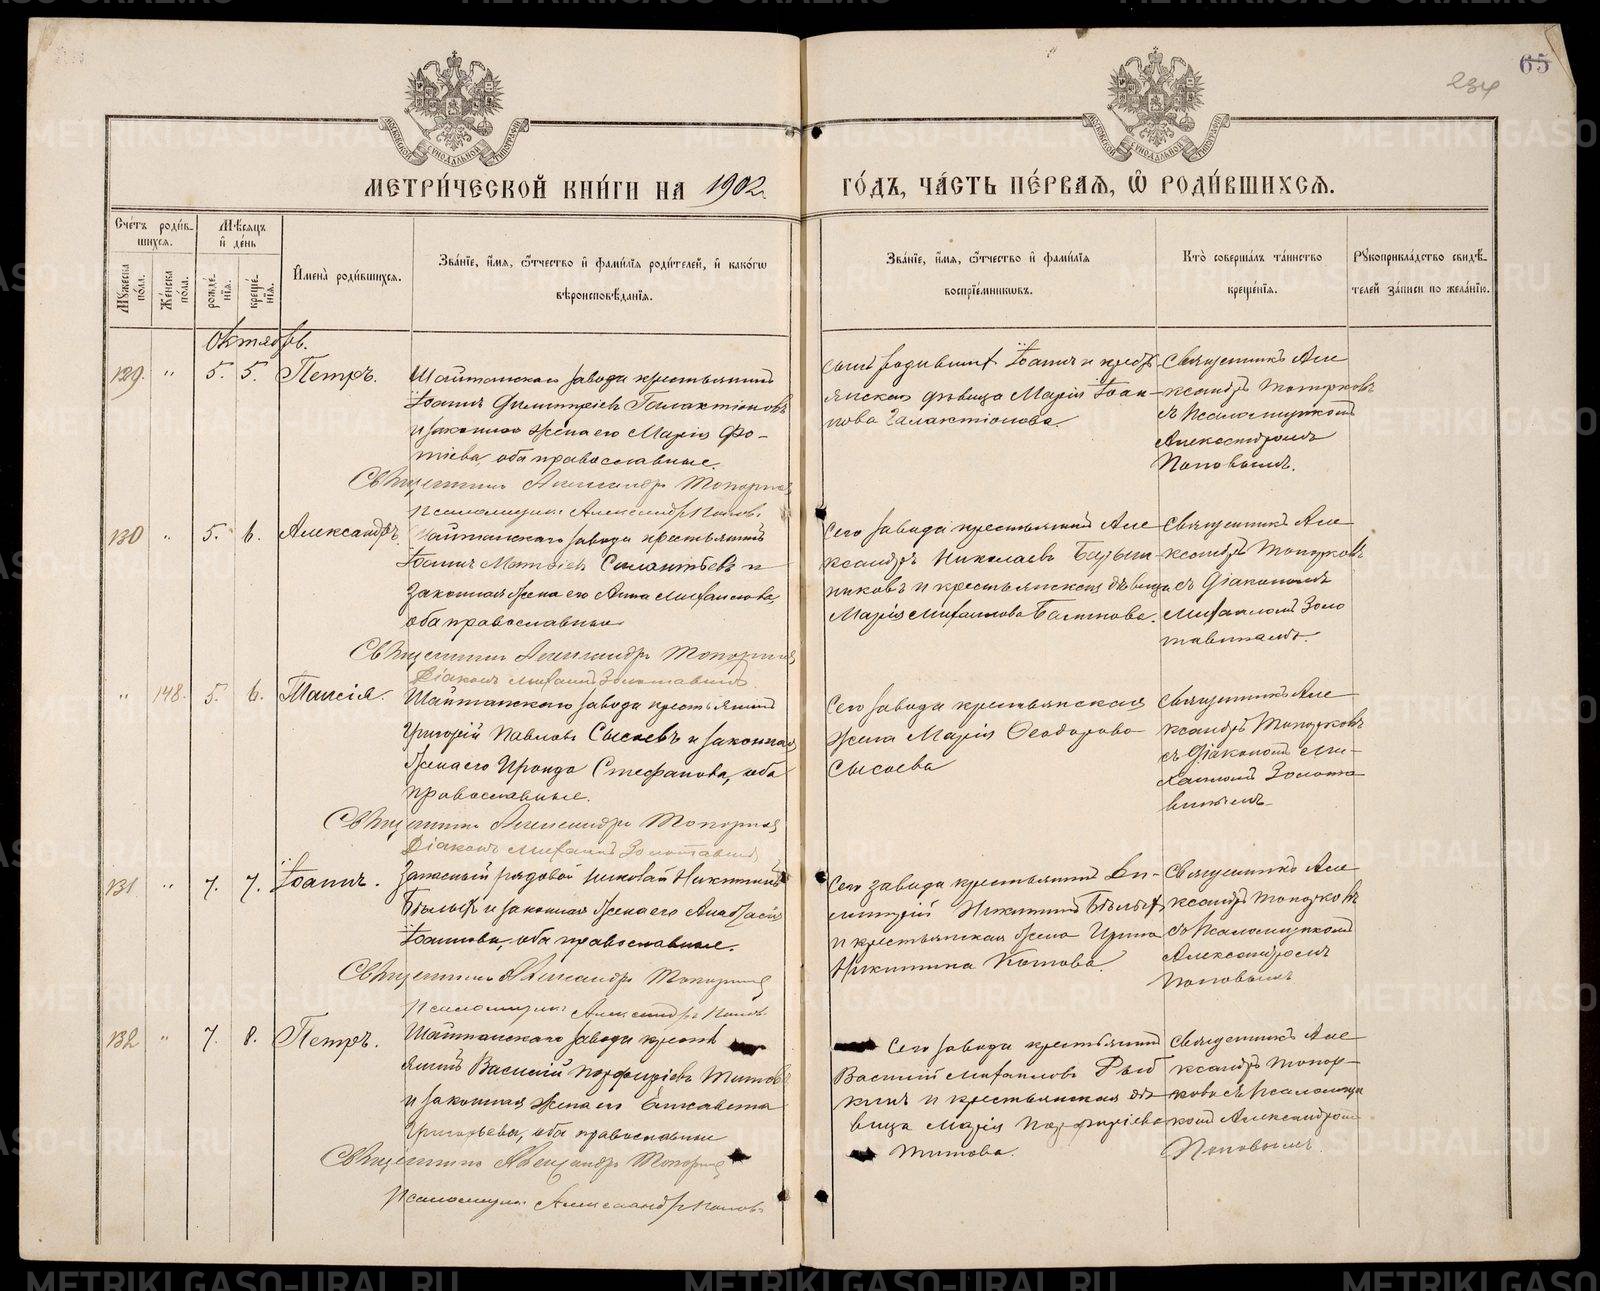 65
234
МЕТРИ́ЧЕСКОЙ КНИ́ГИ НА 1902
ГО́ДЪ, ЧА́СТЬ ПЕ́РВАѦ, Ѽ РОДИ́ВШИХСѦ.
Сче́тъ роди́в-
шихся.
Мѣ́сяцъ
и҆ де́нь
Мꙋ́жеска по́ла.
Же́нска по́ла.
рожде́нїѧ.
креще́нїѧ.
И҆мена̀ роди́вшихсѧ.
Зва́нїе, и҆́мѧ, ѻ҆́тчество и҆ фами́лїѧ роди́телей, и҆ како́гѡ
вѣроисповѣ́данїѧ.
Зва́нїе, и҆́мѧ, ѻ҆́тчество и҆ фами́лїѧ
воспрїе́мникѡвъ.
Кто̀ соверша́лъ та́инство
креще́нїѧ.
Рꙋкоприкла́дство свидѣ́-
телей за́писи по жела́нїю.
Октябрь.
129. " 5. 5. Петръ.
Шайтанскаго завода крестьянинъ
Іоаннъ Димитріевъ Галактіоновъ
и законная жена его Марія Фо-
тіева, оба православные.
Священникъ Александръ Топорковъ
Псаломщикъ Александръ Поповъ.
Іоаннъ и кресть-
янская дѣвица Марія Іоан-
нова Галактіонова.
Священникъ Але
ксандръ Топорковъ
съ Псаломщикомъ
Александромъ
Поповымъ.
130 " 5. 6. Александръ.
Шайтанскаго завода крестьянинъ
Іоаннъ Матѳіевъ Силантьевъ и
законная жена его Анна Михаилова,
оба православные
Священникъ Александръ Топорковъ
Діаконъ Михаилъ Золотавинъ
Сего завода крестьянинъ Але
ксандръ Николаевъ
и крестьянская дѣвица
Марія Михаилова
Священникъ Але
ксандръ Топорковъ
съ Діакономъ
Михаиломъ Золо
тавинымъ.
" 148. 5. 6. Таисія.
Шайтанскаго завода крестьянинъ
Григорій Павловъ Сысоевъ и законная
жена его Ироида Стефанова, оба
православные.
Священникъ Александръ Топорковъ
Діаконъ Михаилъ Золотавинъ
Сего завода крестьянская
жена Марія Ѳеодорова
Сысоева
Священникъ Але
ксандръ Топорковъ
съ Діакономъ Ми-
хаиломъ Золота
винымъ
131 " 7. 7. Іоаннъ.
Запасный рядовой Николай Никитинъ
Бѣлыхъ и законная жена его Анастасія
Іоаннова, оба православные.
Священникъ Александръ Топорковъ
Псаломщикъ Александръ Поповъ.
Сего завода крестьянинъ Ди-
митрій Никитинъ Бѣлыхъ
и крестьянская жена Ирина
Никитина Котова.
Священникъ Але
ксандръ Топорковъ
съ Псаломщикомъ
Александромъ
Поповымъ
132 " 7. 8. Петръ.
Шайтанскаго завода кресть
янинъ Василій Порфиріевъ Титовъ
и законная жена его Елисавета
Григорьева, оба православные
Священникъ Александръ Топорковъ
Псаломщикъ Александръ Поповъ.
Сего завода крестьянинъ
Василій Михаиловъ Рыб
кинъ и крестьянская дѣ
вица Марія Порфиріева
Титова.
Священникъ Але
ксандръ Топор-
ковъ съ Псаломщи
комъ Александромъ
Поповымъ.
METRIKI.GASO-URAL.RU